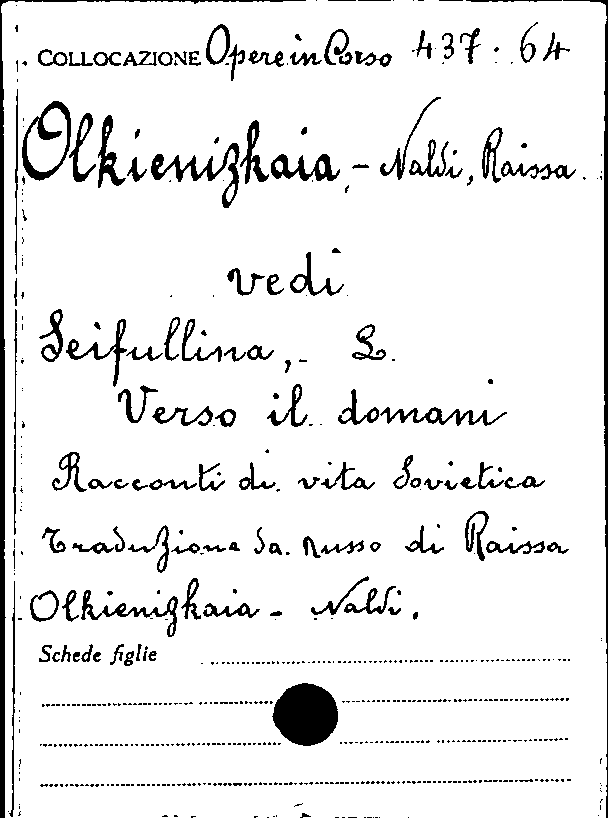 COLLOCAZIONE Opere in Corso 437. 64
Olkienizkaia, - Naldi, Raissa.
vedi
Seifullina, - L.
Verso il domani
Racconti di vita Sovietica
Traduzione da russo di Raissa
Olkienizkaia - Naldi.
Schede figlie